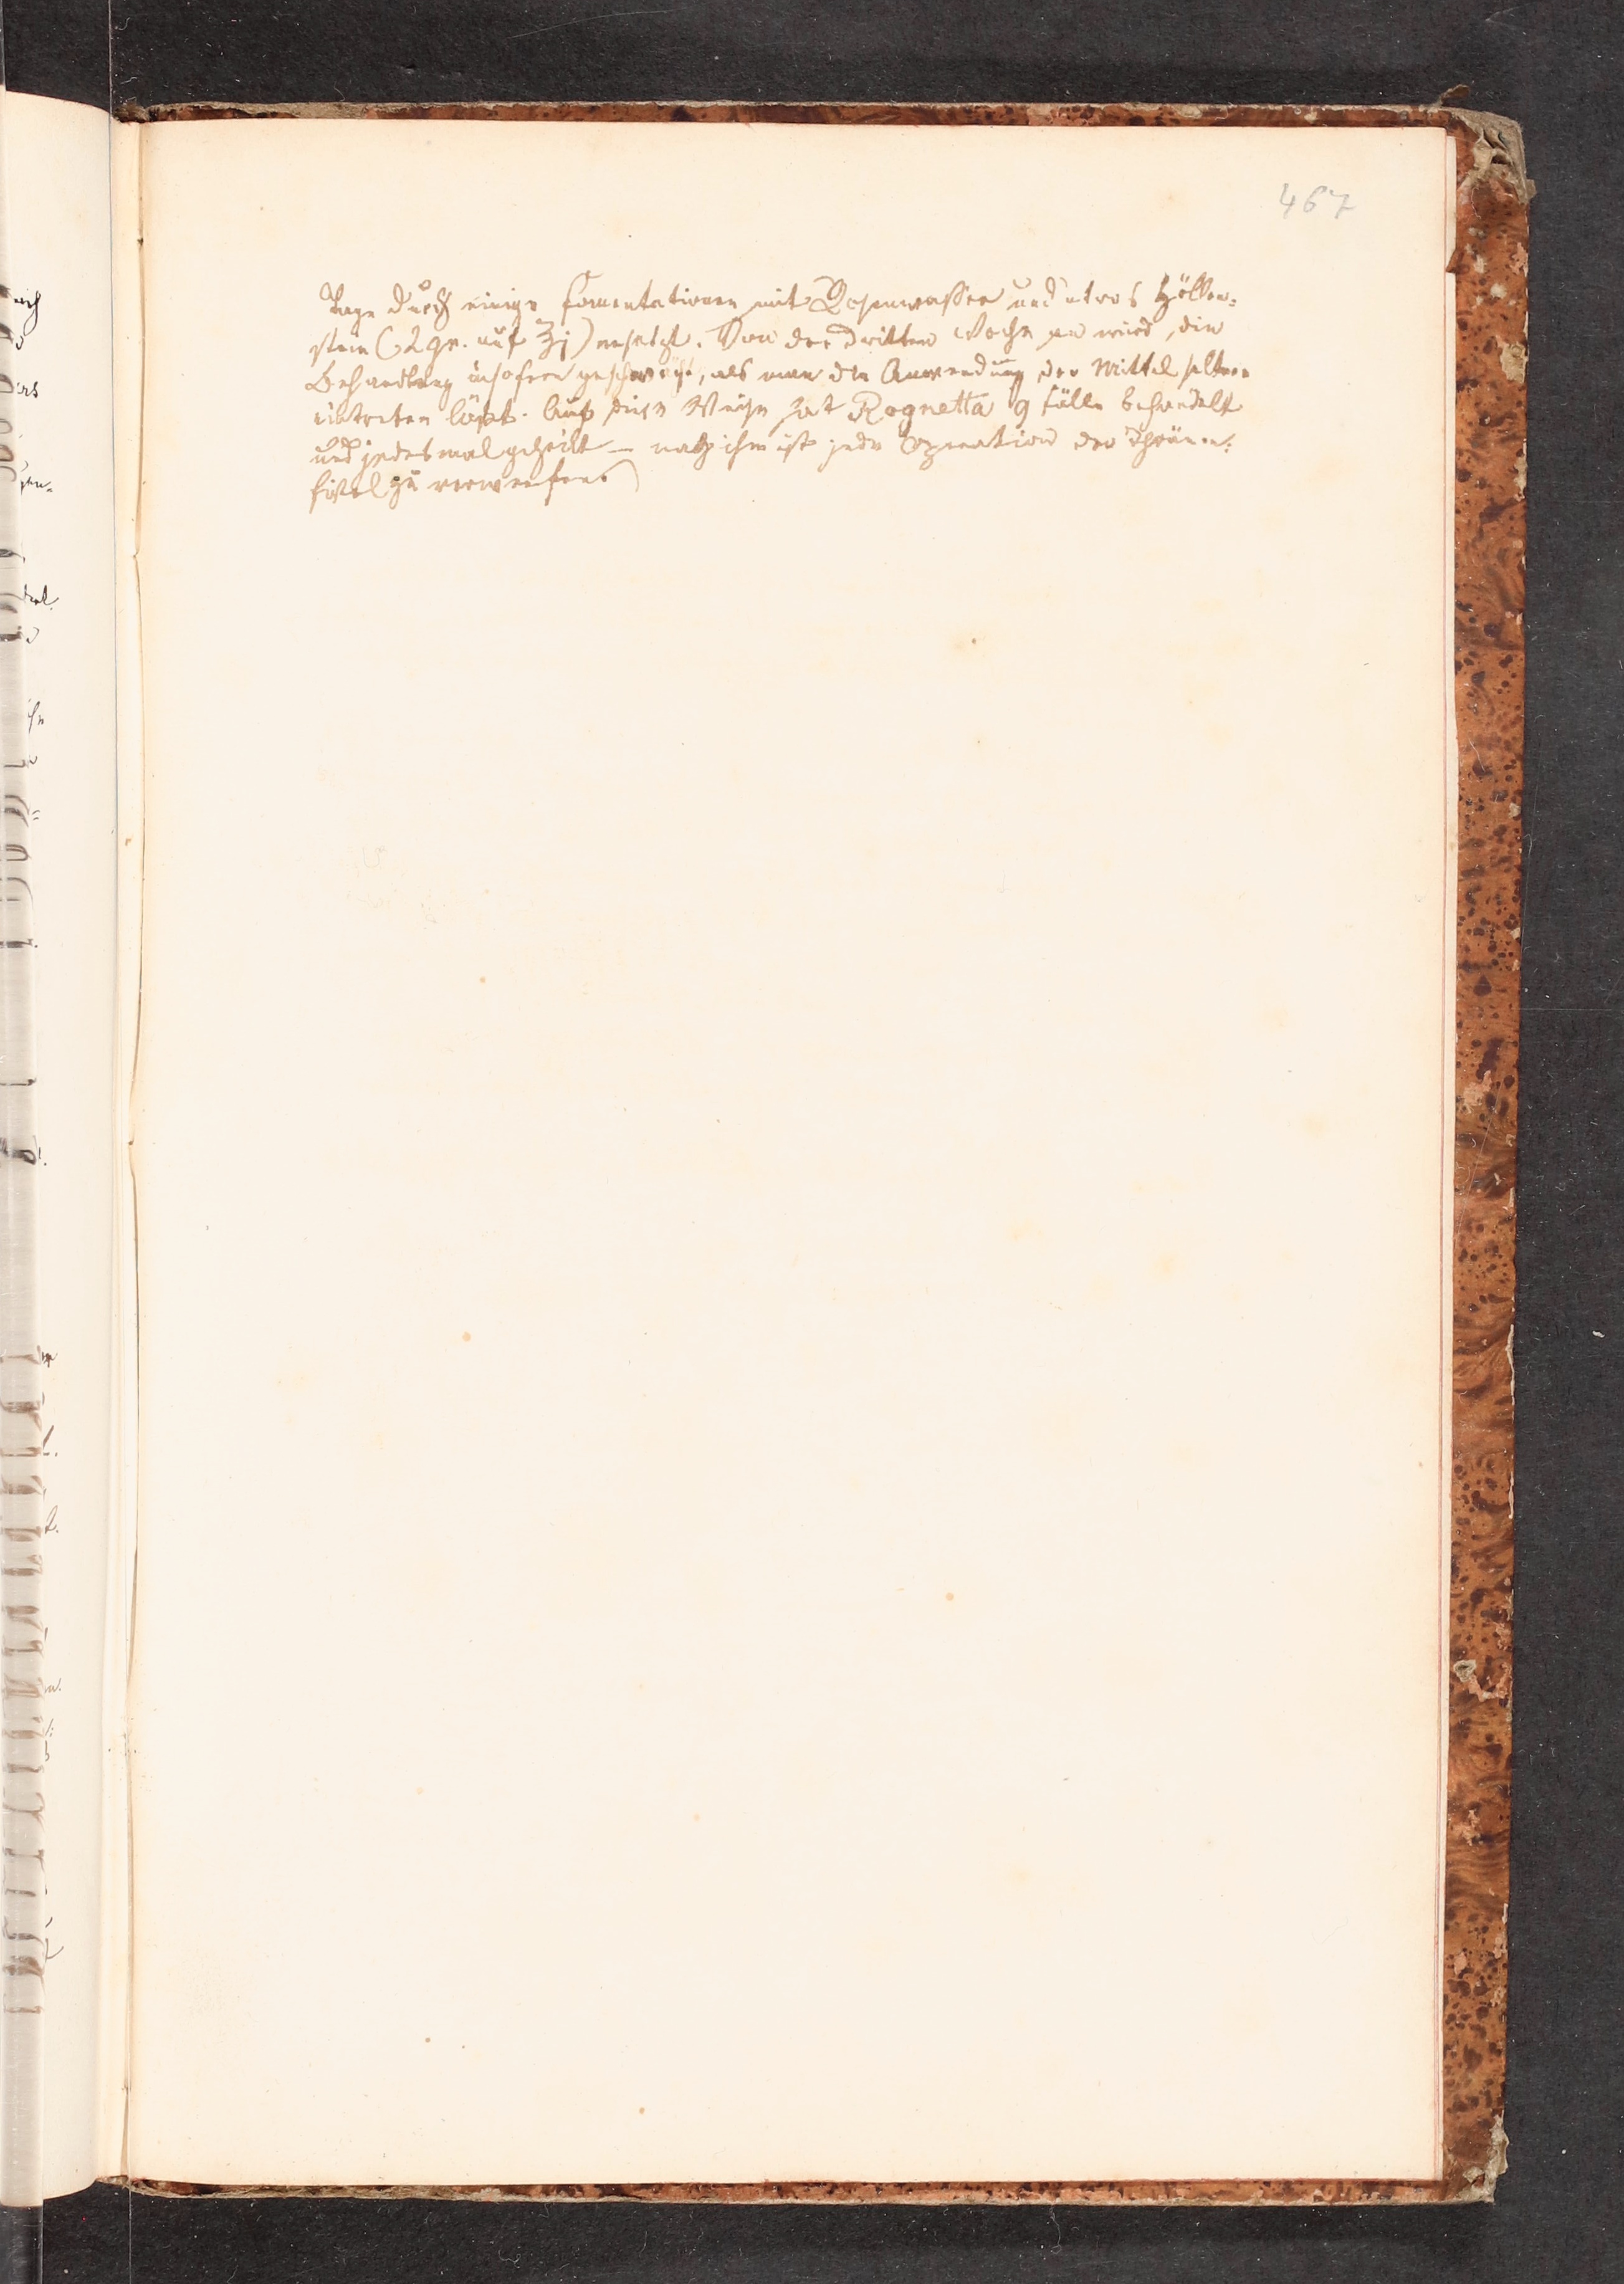 467
Tage durch einige Fomentationen mit Rosenwasser und etwas Höllen=
stein (2 gr. auf ℥j) ersetzt. Von der dritten Woche an wird die
Behandlung insofern geschwächt, als man die Anwendung der Mittel seltner
eintreten läßt. Auf diese Weise hat Rognetta 9 Fälle behandelt
und jedesmal geheilt — nach ihm ist jede Operation der Thränen=
fistel zu verwerfen.